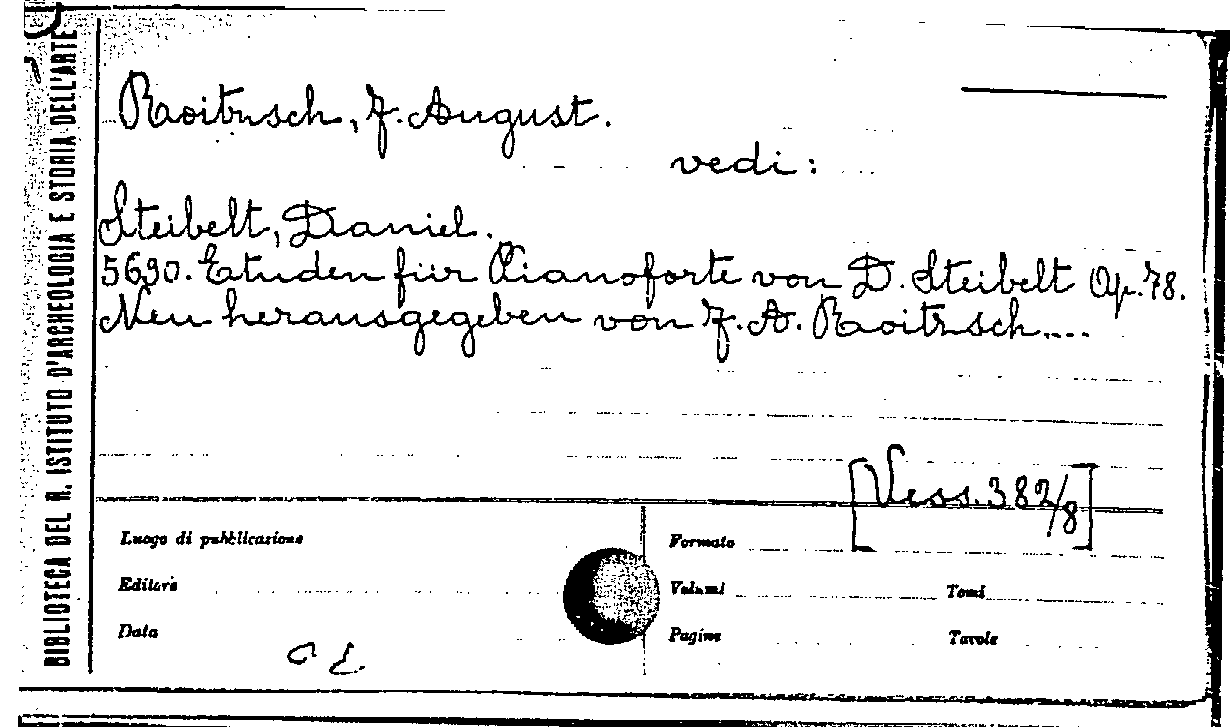 BIBLIOTECA DEL R. ISTITUTO D'ARCHEOLOGIA E STORIA DELL'ARTE
Roitzsch, F. August.
vedi:
Steibelt, Daniel.
5690. Etuden für Pianoforte von D. Steibelt Op. 78.
Neu herausgegeben von F. A. Roitzsch....
[Vess. 382/8]
Luogo di pubblicazione
Formato
Editore
Volumi
Tomi
Data
Pagine
Tavole